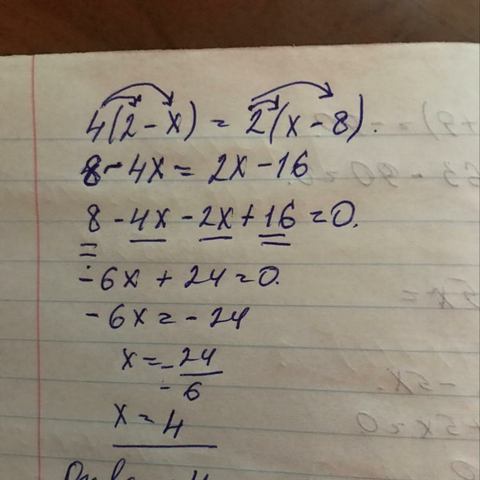 4(2-x) = 2(x-8).
8-4x = 2x-16
8-4x-2x+16=0.
-6x+24=0.
-6x=-24
x=-24/-6
x=4